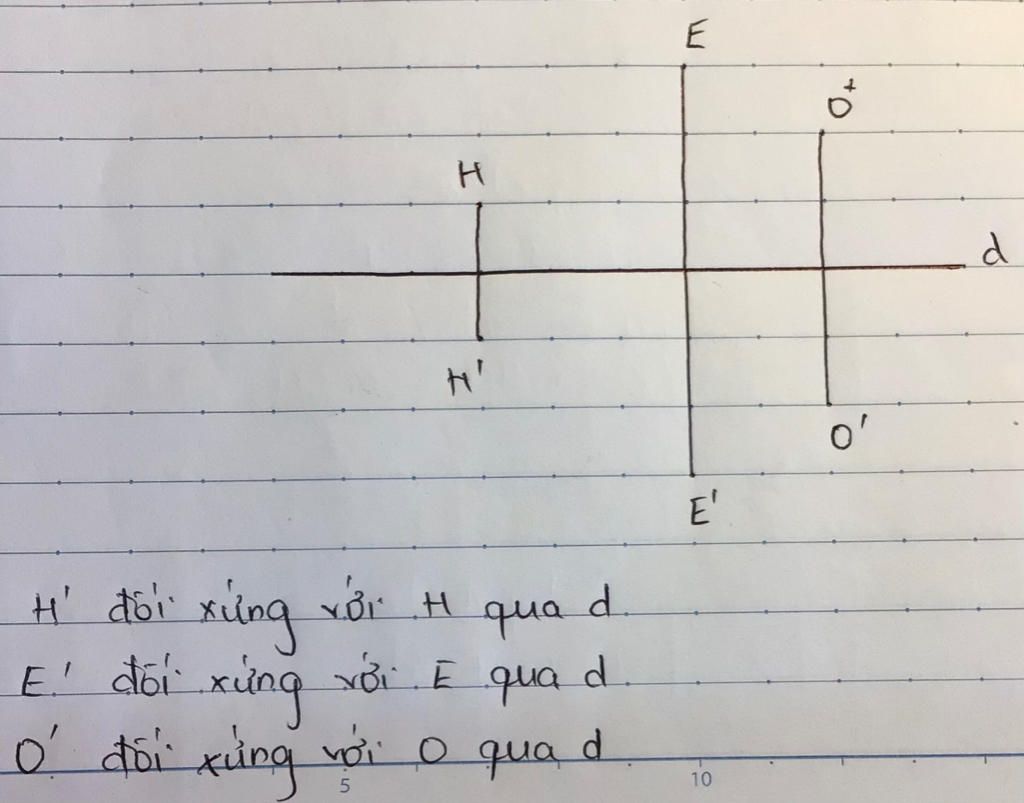 E
O⁺
H
d
H'
O'
E'
H' đối xứng với H qua d.
E' đối xứng với E qua d.
O' đối xứng với O qua d
5 10